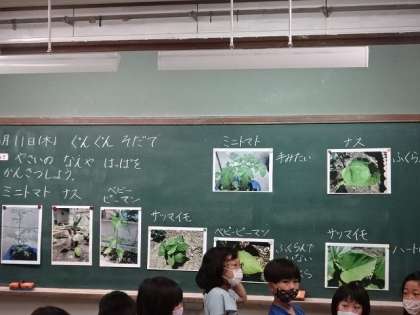 月11日(木) ぐんぐん そだて
やさいの なんや はっぱを
かんさつしよう。
ミニトマト ナス
ベビー
ピーマン
サツマイモ
ミニトマト
手みたい
ナス
ふくら
ベビーピーマン
ふくらんで
ない
サツマイモ
ハート